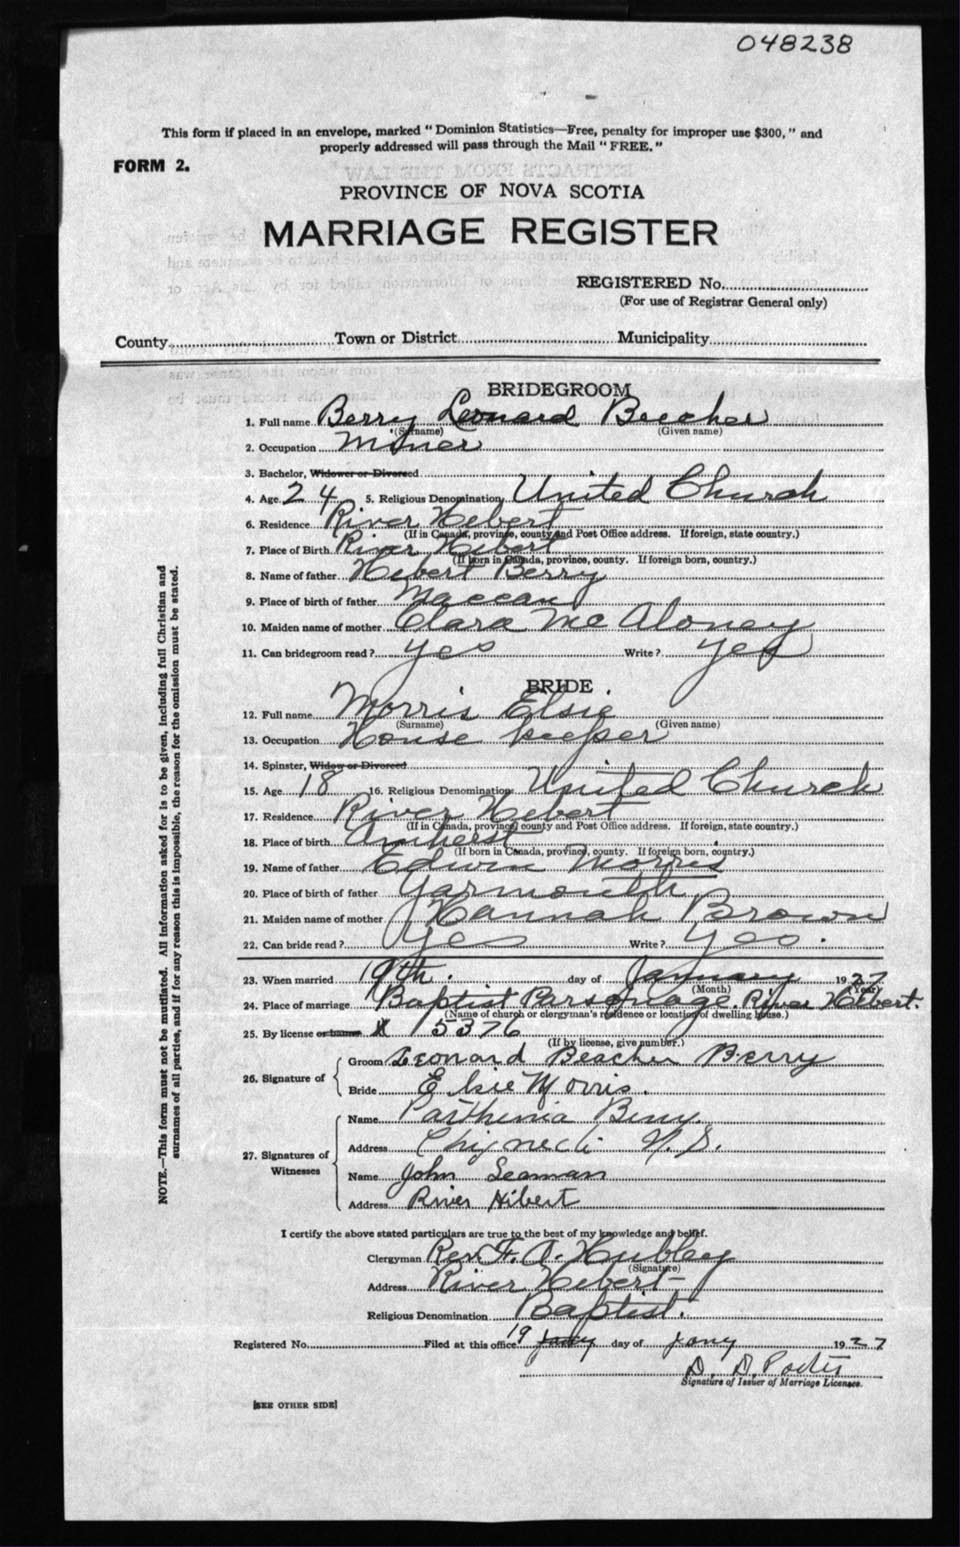 048238
This form if placed in an envelope, marked "Dominion Statistics—Free, penalty for improper use $300," and
properly addressed will pass through the Mail "FREE."
FORM 2.
PROVINCE OF NOVA SCOTIA
MARRIAGE REGISTER
REGISTERED No.
(For use of Registrar General only)
County Town or District Municipality
BRIDEGROOM
1. Full name Berry Leonard Beecher
(Surname) (Given name)
2. Occupation Miner
3. Bachelor, Widower or Divorced
4. Age 24 5. Religious Denomination United Church
6. Residence River Hebert
(If in Canada, province, county and Post Office address. If foreign, state country.)
7. Place of Birth River Hebert
(If born in Canada, province, county. If foreign born, country.)
8. Name of father Hebert Berry
9. Place of birth of father Maccan
10. Maiden name of mother Clara Mc Aloney
11. Can bridegroom read? yes Write? yes
BRIDE
12. Full name Morris Elsie
(Surname) (Given name)
13. Occupation House keeper
14. Spinster, Widow or Divorced
15. Age 18 16. Religious Denomination United Church
17. Residence River Hebert
(If in Canada, province, county and Post Office address. If foreign, state country.)
18. Place of birth Amherst
(If born in Canada, province, county. If foreign born, country.)
19. Name of father Edwin Morris
20. Place of birth of father Yarmouth
21. Maiden name of mother Hannah Brown
22. Can bride read? Yes Write? Yes.
23. When married 19th. day of January 1927
(Month) (Year)
24. Place of marriage Baptist Parsonage. River Hebert.
(Name of church or clergyman's residence or location of dwelling house.)
25. By license or banns 5376
(If by license, give number.)
26. Signature of
Groom Leonard Beacher Berry
Bride Elsie Morris.
27. Signatures of Witnesses
Name Parthenia Berry.
Address Chignecto N.S.
Name John Seaman
Address River Hibert
I certify the above stated particulars are true to the best of my knowledge and belief.
Clergyman Rev. F. A. Hubley
(Signature)
Address River Hebert
Religious Denomination Baptist.
Registered No. Filed at this office 19 Jany day of Jany 1927
D. D. Porter
Signature of Issuer of Marriage Licenses.
[SEE OTHER SIDE]
NOTE.—This form must not be mutilated. All information asked for is to be given, including full Christian and
surnames of all parties, and if for any reason this is impossible, the reason for the omission must be stated.